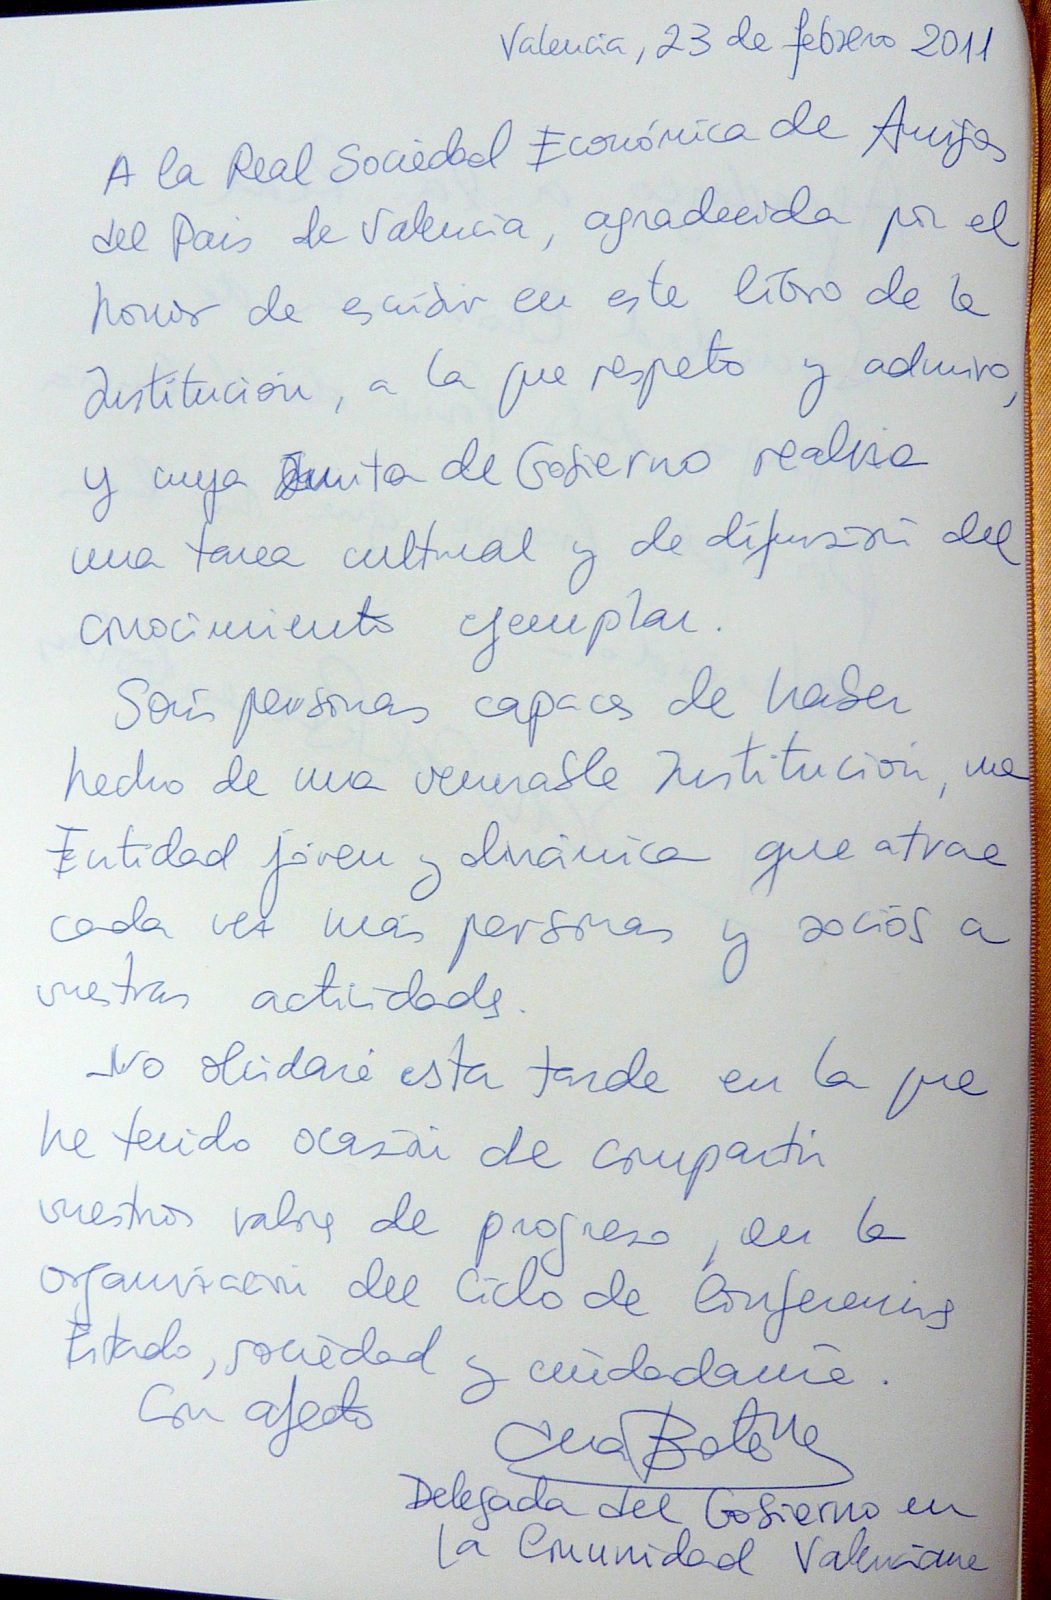 Valencia, 23 de febrero 2011
A la Real Sociedad Económica de Amigos
del Pais de Valencia, agradecida por el
honor de escribir en este libro de la
Institución, a la que respeto y admiro,
y cuya Junta de Gobierno realiza
una tarea cultural y de difusión del
conocimiento ejemplar.
Sois personas capaces de haber
hecho de una venerable Institución, una
Entidad jóven y dinámica que atrae
cada vez más personas y socios a
vuestras actividades.
No olvidaré esta tarde en la que
he tenido ocasión de compartir
vuestros valores de progreso, en la
organización del Ciclo de Conferencias
Estado, sociedad y ciudadanía.
Con afecto
Ana Botella
Delegada del Gobierno en
la Comunidad Valenciana